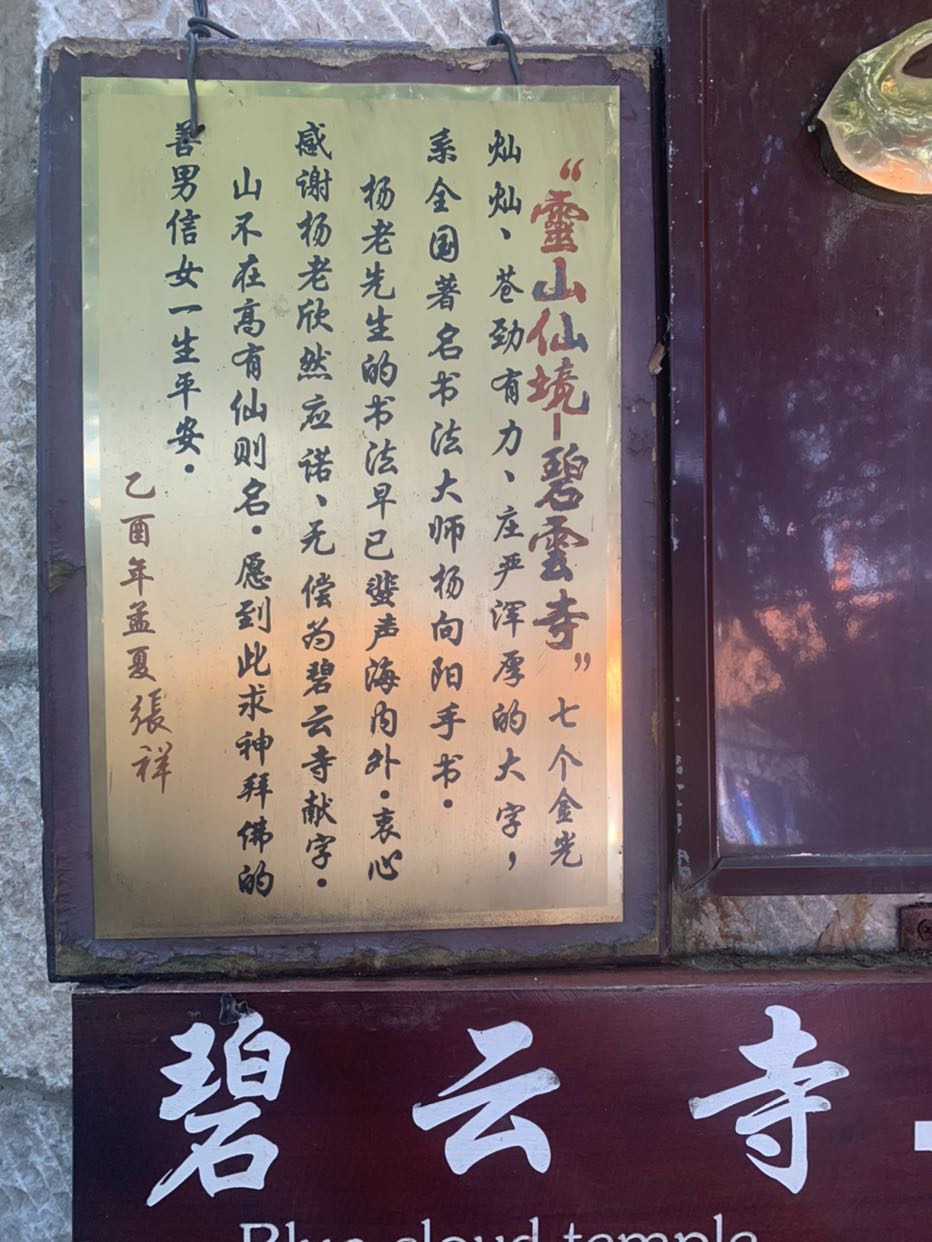 “靈山仙境－碧雲寺”七个金光
灿灿、苍劲有力、庄严浑厚的大字，
系全国著名书法大师杨向阳手书.
杨老先生的书法早已斐声海内外.衷心
感谢杨老欣然应诺、无偿为碧云寺献字.
山不在高有仙则名.愿到此求神拜佛的
善男信女一生平安.
乙酉年孟夏張祥
碧云寺
Blue cloud temple